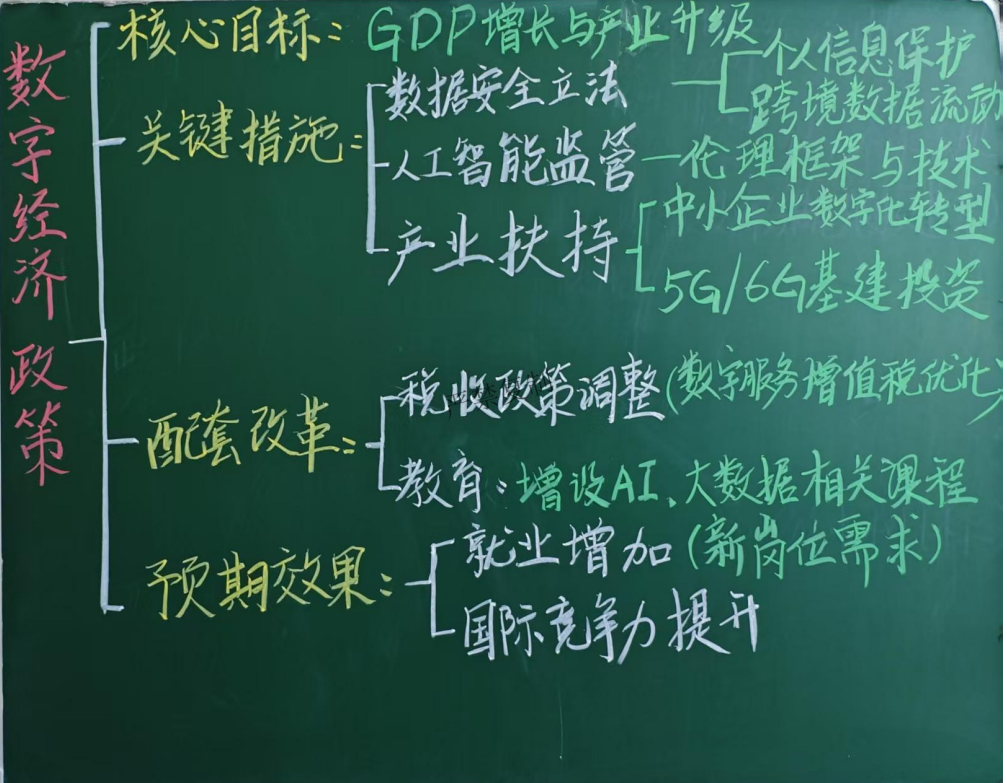 数字经济政策
核心目标：GDP增长与产业升级
关键措施：
数据安全立法
个人信息保护
跨境数据流动
人工智能监管—伦理框架与技术
产业扶持
中小企业数字化转型
5G/6G基建投资
配套改革：
税收政策调整(数字服务增值税优化)
教育：增设AI、大数据相关课程
预期效果：
就业增加(新岗位需求)
国际竞争力提升